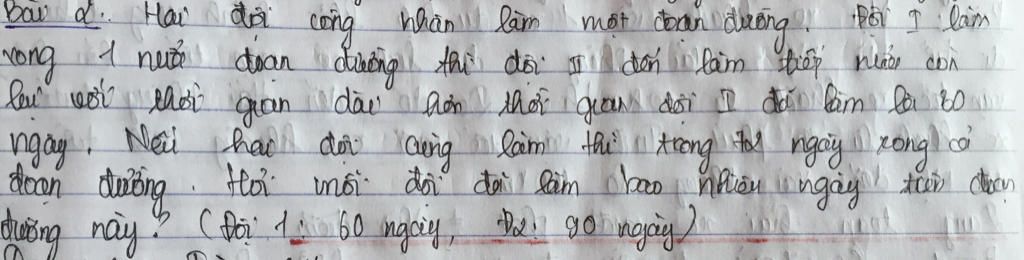 Bài 2. Hai đội công nhân làm một đoạn đường. Đội I làm
xong 1 nửa đoạn đường thì đội II đến làm tiếp nửa còn
lại với thời gian dài hơn thời gian đội I đã làm là 30
ngày. Nếu hai đội cùng làm thì trong 72 ngày xong cả
đoạn đường. Hỏi mỗi đội đã làm bao nhiêu ngày trên đoạn
đường này? (Đội 1: 60 ngày, Đ2: 90 ngày)